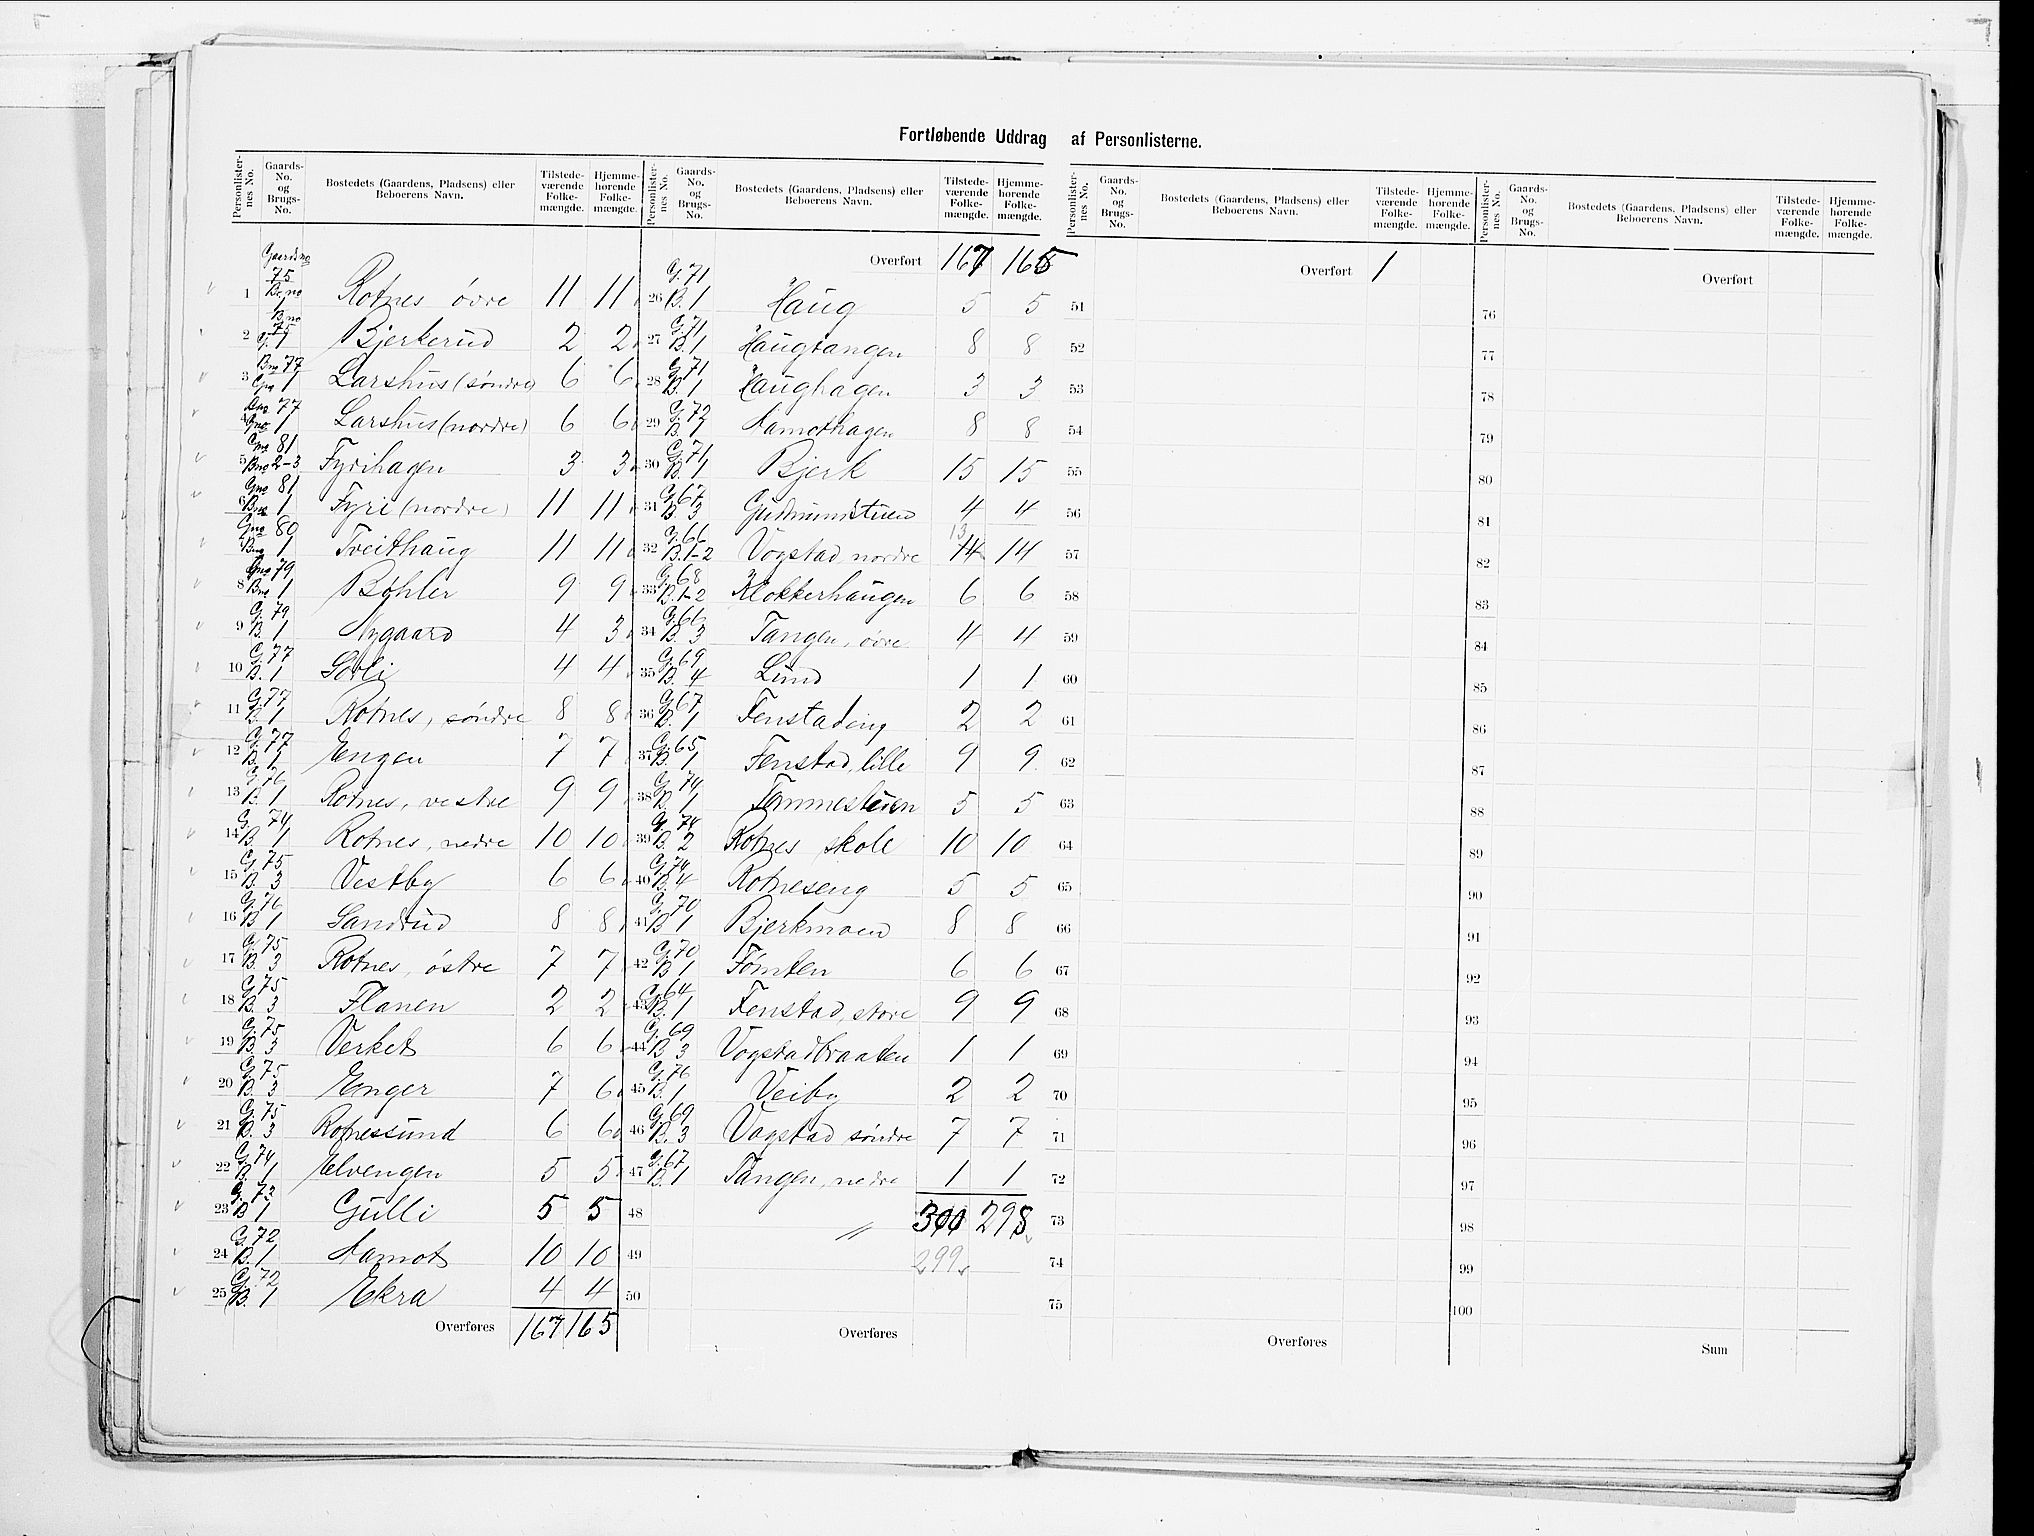 Fortløbende Uddrag af Personlisterne.
Personlisternes No. Gaards-No. og Brugs-No. Bostedets (Gaardens, Pladsens) eller Beboerens Navn. Tilstedeværende Folkemængde. Hjemmehørende Folkemængde.
Gaardsno 75 Br.no 1
1 Rotnes øvre 11 11
2 75 1 Bjerkerud 2 2
3 77 1 Larshus (søndre) 6 6
4 77 1 Larshus (nordre) 6 6
5 Gno 81 Bno 2-3 Fyrihagen 3 3
6 Gno 81 Bno 1 Fyri (nordre) 11 11
7 Gno 80 Bno 1 Tveithaug 11 11
8 Gno 79 Bno 1 Bøhler 9 9
9 G. 79 B. 1 Nygaard 4 3
10 G. 77 B. 1 Sørli 4 4
11 G. 77 B. 1 Rotnes, søndre 8 8
12 G. 77 B. 1 Engen 7 7
13 G. 76 B. 1 Rotnes, vestre 9 9
14 G. 74 B. 1 Rotnes, nedre 10 10
15 G. 75 B. 3 Vestby 6 6
16 G. 76 B 1 Sandrud 8 8
17 G. 75 B. 3 Rotnes, østre 7 7
18 G. 75 B. 3 Flanen 2 2
19 G. 75 B. 3 Verket 6 6
20 G. 75 B. 3 Enger 7 6
21 G. 75 B. 3 Rotnessund 6 6
22 G. 74 B. 1 Elvengen 5 5
23 G. 72 B 1 Gulli 5 5
24 G. 72 B. 1 Aamot 10 10
25 G. 72 B. 1 Ekra 4 4
Overføres 167 165
Overført 167 165
26 G. 71 B. 1 Haug 5 5
27 G. 71 B. 1 Haugtangen 8 8
28 G. 71 B. 1 Haughagen 3 3
29 G. 72 B. 1 Aamothagen 8 8
30 G. 71 B. 1 Bjerk 15 15
31 G. 67 B. 3 Gudmundstuen 4 4
32 G. 66 B. 1-2 Vogstad, nordre 13 14 14
33 G. 68 B. 1-2 Klokkerhaugen 6 6
34 G. 66 B. 3 Tangen, øvre 4 4
35 G. 69 B. 4 Lund 1 1
36 G. 67 B. 1 Fenstadeng 2 2
37 G. 65 B. 1 Fenstad, lille 9 9
38 G. 74 B. 1 Tømmesteien 5 5
39 G. 74 B. 2 Rotnes skole 10 10
40 G. 74 B. 4 Rotneseng 5 5
41 G. 70 B 1 Bjerkmoen 8 8
42 G. 70 B 1 Fømten 6 6
43 G. 64 B. 1 Fenstad, store 9 9
44 G. 69 B 3 Vogstadbraaten 1 1
45 G. 76 B. 1 Veiby 2 2
46 G. 69 B. 3 Vogstad søndre 7 7
47 G. 67 B. 1 Tangen, nedre 1 1
48 〃 300 298
49 299
50
Overføres
Personlisternes No. Gaards-No. og Brugs-No. Bostedets (Gaardens, Pladsens) eller Beboerens Navn. Tilstedeværende Folkemængde. Hjemmehørende Folkemængde.
Overført 1
51
52
53
54
55
56
57
58
59
60
61
62
63
64
65
66
67
68
69
70
71
72
73
74
75
Overføres
Overført
76
77
78
79
80
81
82
83
84
85
86
87
88
89
90
91
92
93
94
95
96
97
98
99
100
Sum